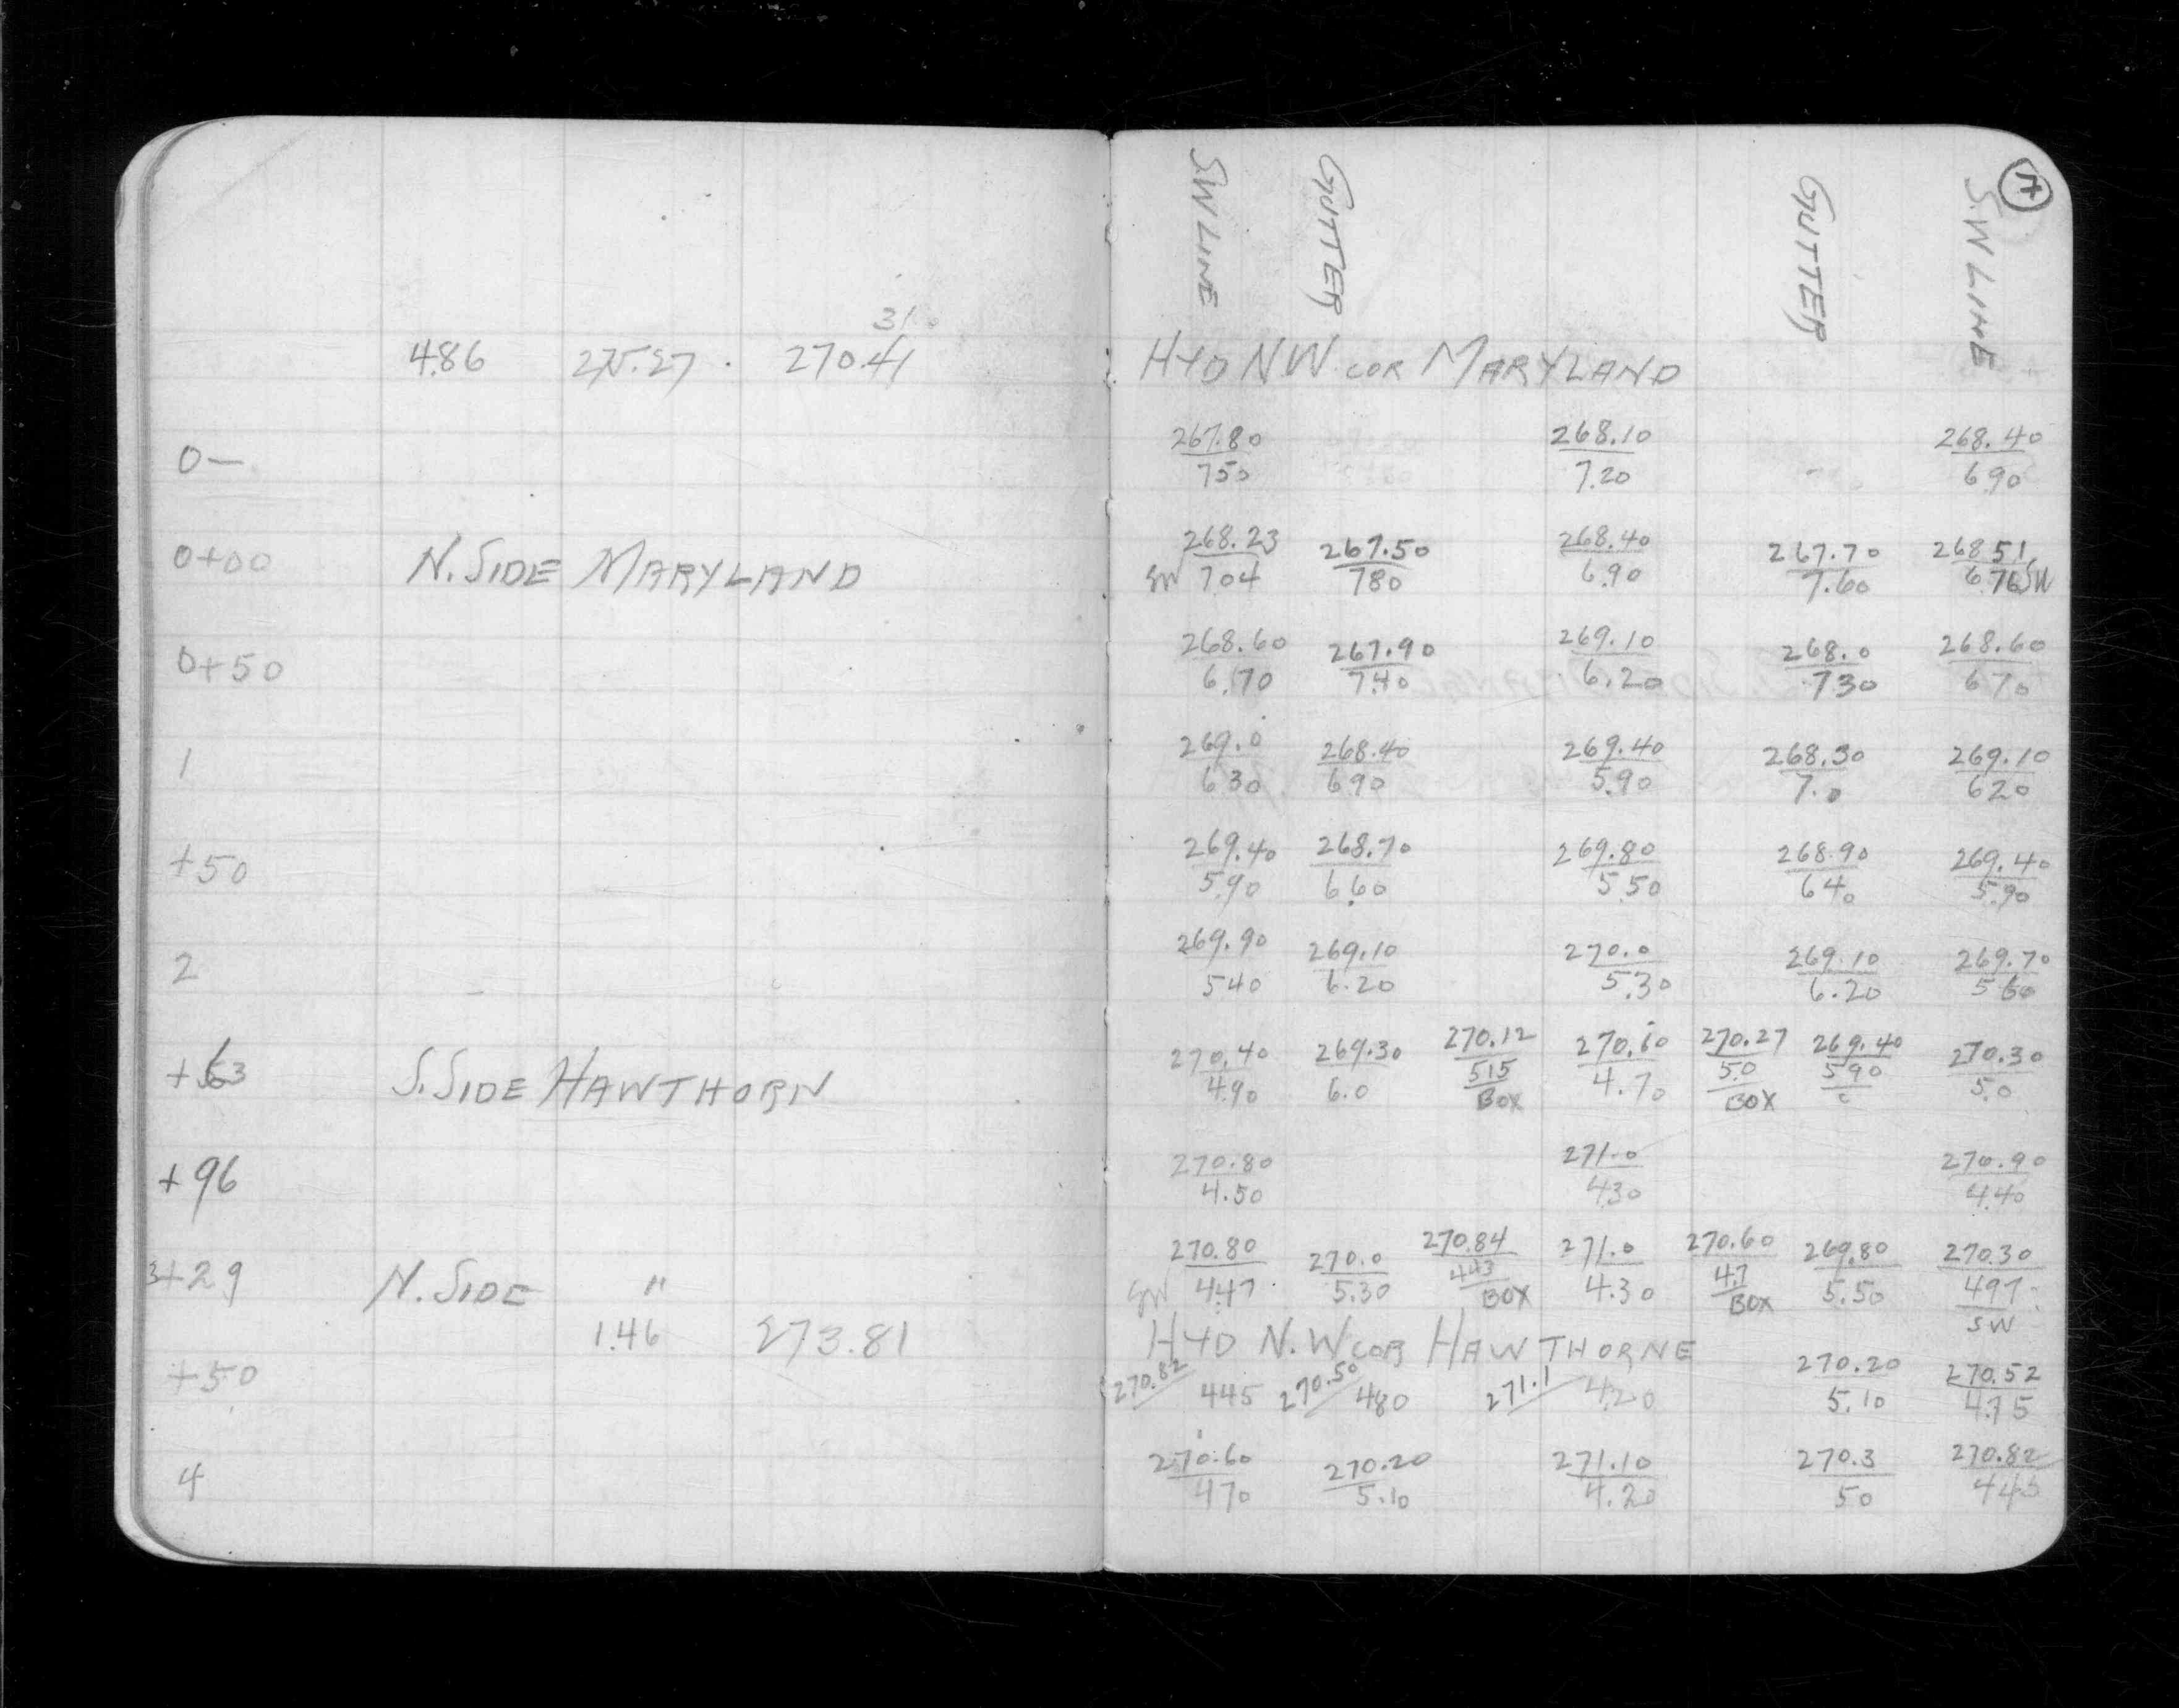 17
S.W LINE GUTTER GUTTER S.W LINE
31.
4.86 275.27 . 270.41 HYD NW COR MARYLAND
267.80 268.10 268.40
0— 750 7.20 690
268.23 267.50 268.40 267.70 26851
0+00 N. SIDE MARYLAND SW 704 780 6.90 7.60 6.76 SW
268.60 267.90 269.10 268.0 268.60
0+50 6.70 740 6.20 730 670
269.0 268.40 269.40 268.30 269.10
1 630 690 5.90 7.0 620
269.40 268.70 269.80 268.90 269.40
+50 5.90 6.60 5.50 640 5.90
269.90 269.10 270.0 269.10 269.70
2 540 6.20 5.30 6.20 560
270.40 269.30 270.12 270.60 270.27 269.40 270.30
+63 S. SIDE HAWTHORN 4.90 6.0 515 4.70 5.0 590 5.0
BOX BOX C
270.80 271.0 270.90
+96 4.50 430 4.40
270.80 270.0 270.84 271.0 270.60 269.80 270.30
3+29 N. SIDE " SW 4.47 5.30 443 4.30 4.7 5.50 497
BOX BOX SW
1.46 273.81 HYD N.W COR HAWTHORNE
270.20 270.52
+50 270.82 445 270.50 480 271.1 420 5.10 4.75
270.60 270.20 271.10 270.3 270.82
4 470 5.10 4.20 50 445